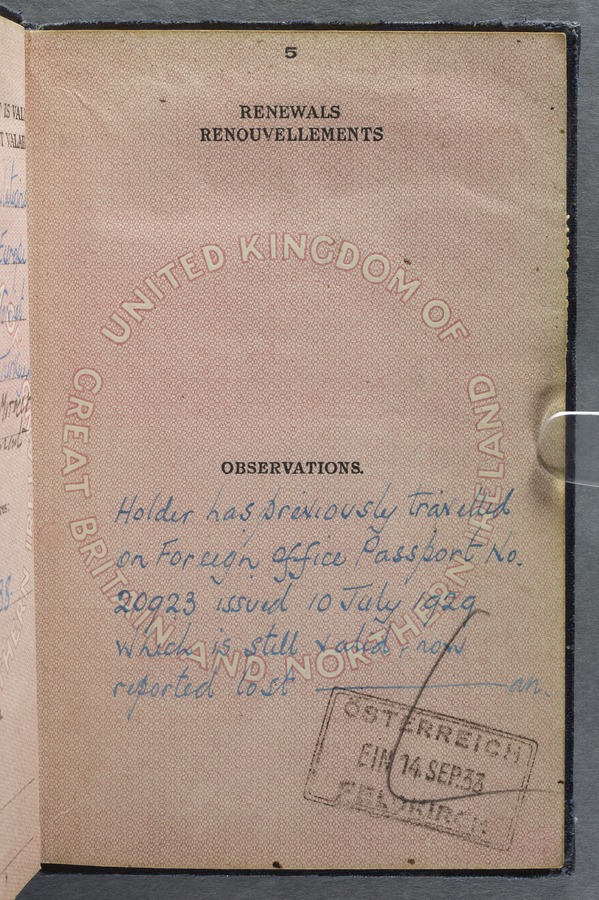 5
RENEWALS
RENOUVELLEMENTS
UNITED KINGDOM OF
GREAT BRITAIN AND NORTHERN IRELAND
OBSERVATIONS.
Holder has previously travelled
on Foreign office Passport No.
20923 issued 10 July 1929
which is still valid, now
reported lost — an.
ÖSTERREICH
EIN 14 SEP. 33
FELDKIRCH